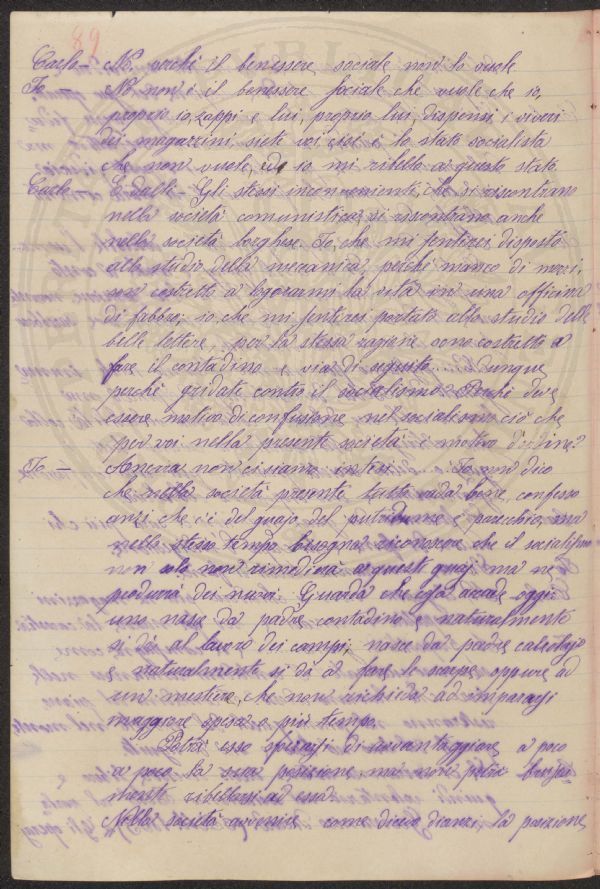 89
Carlo — No perchè il benessere sociale non lo vuole
Io — No non è il benessere sociale che vuole che io,
proprio io, zappi e lui, proprio lui, dispensi i viveri
dei magazzini, siete voi cioè è lo stato socialista
che non vuole, ed io mi ribello a questo stato.
Carlo — E dalli – Gli stessi inconvenienti, che si riscontrano
nella società comunistica, si riscontrano anche
nella società borghese. Io, che mi sentirei disposto
allo studio della meccanica, perchè manco di mezzi,
son costretto a logorarmi la vita in una officina
di fabbro; io che mi sentirei portato allo studio delle
belle lettere, per la stessa ragione sono costretto a
fare il contadino e via di seguito.... Dunque
perchè gridate contro il socialismo? Perchè deve
essere motivo di confusione nel socialismo ciò che
per voi nella presente società è motivo d'ordine?
Io — Ancora non ci siamo intesi.... Io non dico
che nella società presente tutto vada bene, confesso
anzi che c'è del guajo, del putridume e parecchio, ma
nello stesso tempo bisogna riconoscere che il socialismo
non solo non rimedierà a questi guaj ma ne
produrrà dei nuovi. Guarda che cosa accade oggi:
uno nasce da padre contadino e naturalmente
si dà al lavoro dei campi; nasce da padre calzolajo
e naturalmente si dà a fare le scarpe, oppure ad
un mestiere, che non richieda ad impararsi
maggiore spesa o più tempo.
Potrà esso sforzarsi di avvantaggiare, a poco
a poco la sua posizione, ma non potrà
ribellarsi ad essa.
Nella società avvenire come dicevo dianzi, la posizione